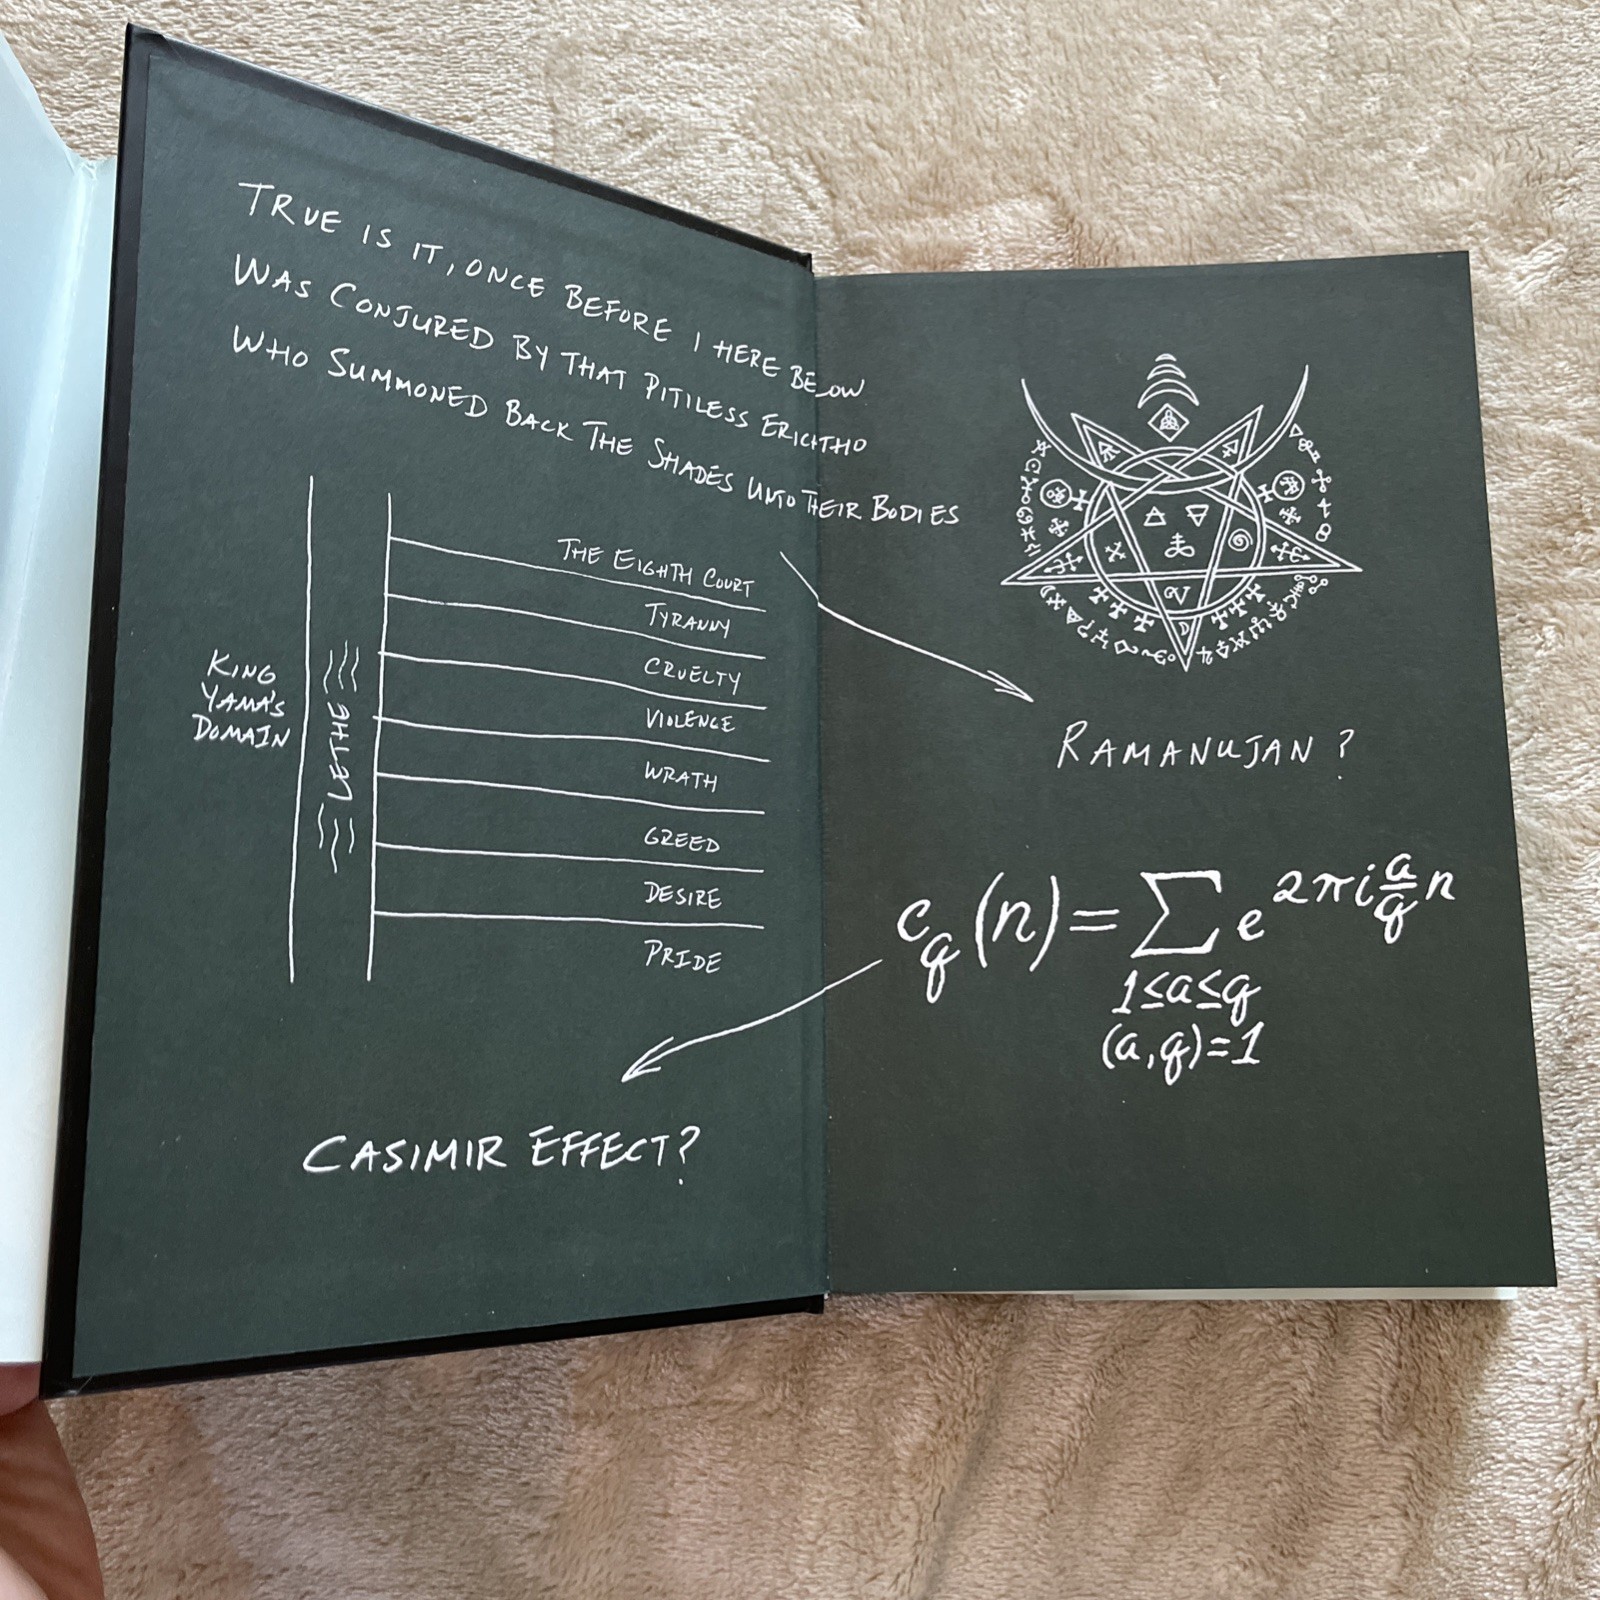 TRUE IS IT, ONCE BEFORE I HERE BELOW
WAS CONJURED BY THAT PITILESS ERICHTHO
WHO SUMMONED BACK THE SHADES UNTO THEIR BODIES
THE EIGHTH COURT
TYRANNY
CRUELTY
VIOLENCE
WRATH
GREED
DESIRE
PRIDE
KING
YAMA'S
DOMAIN
LETHE
CASIMIR EFFECT?
RAMANUJAN?
c_q(n)=∑e^{2πi\frac{a}{q}n}
1≤a≤q
(a,q)=1